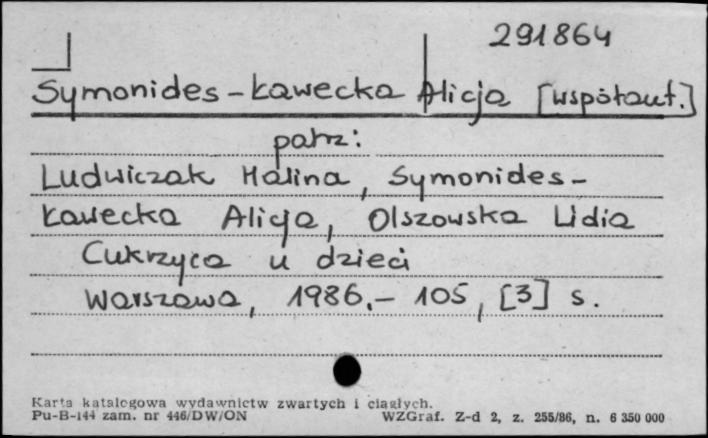 291864
Symonides-Ławecka Alicja [współaut.]
patrz:
Ludwiczak Halina, Symonides-
Ławecka Alicja, Olszowska Lidia
Cukrzyca u dzieci
Warszawa, 1986.- 105, [3] s.
Karta katalogowa wydawnictw zwartych i ciągłych.
Pu-B-144 zam. nr 446/DW/ON WZGraf. Z-d 2, z. 255/86, n. 6 350 000